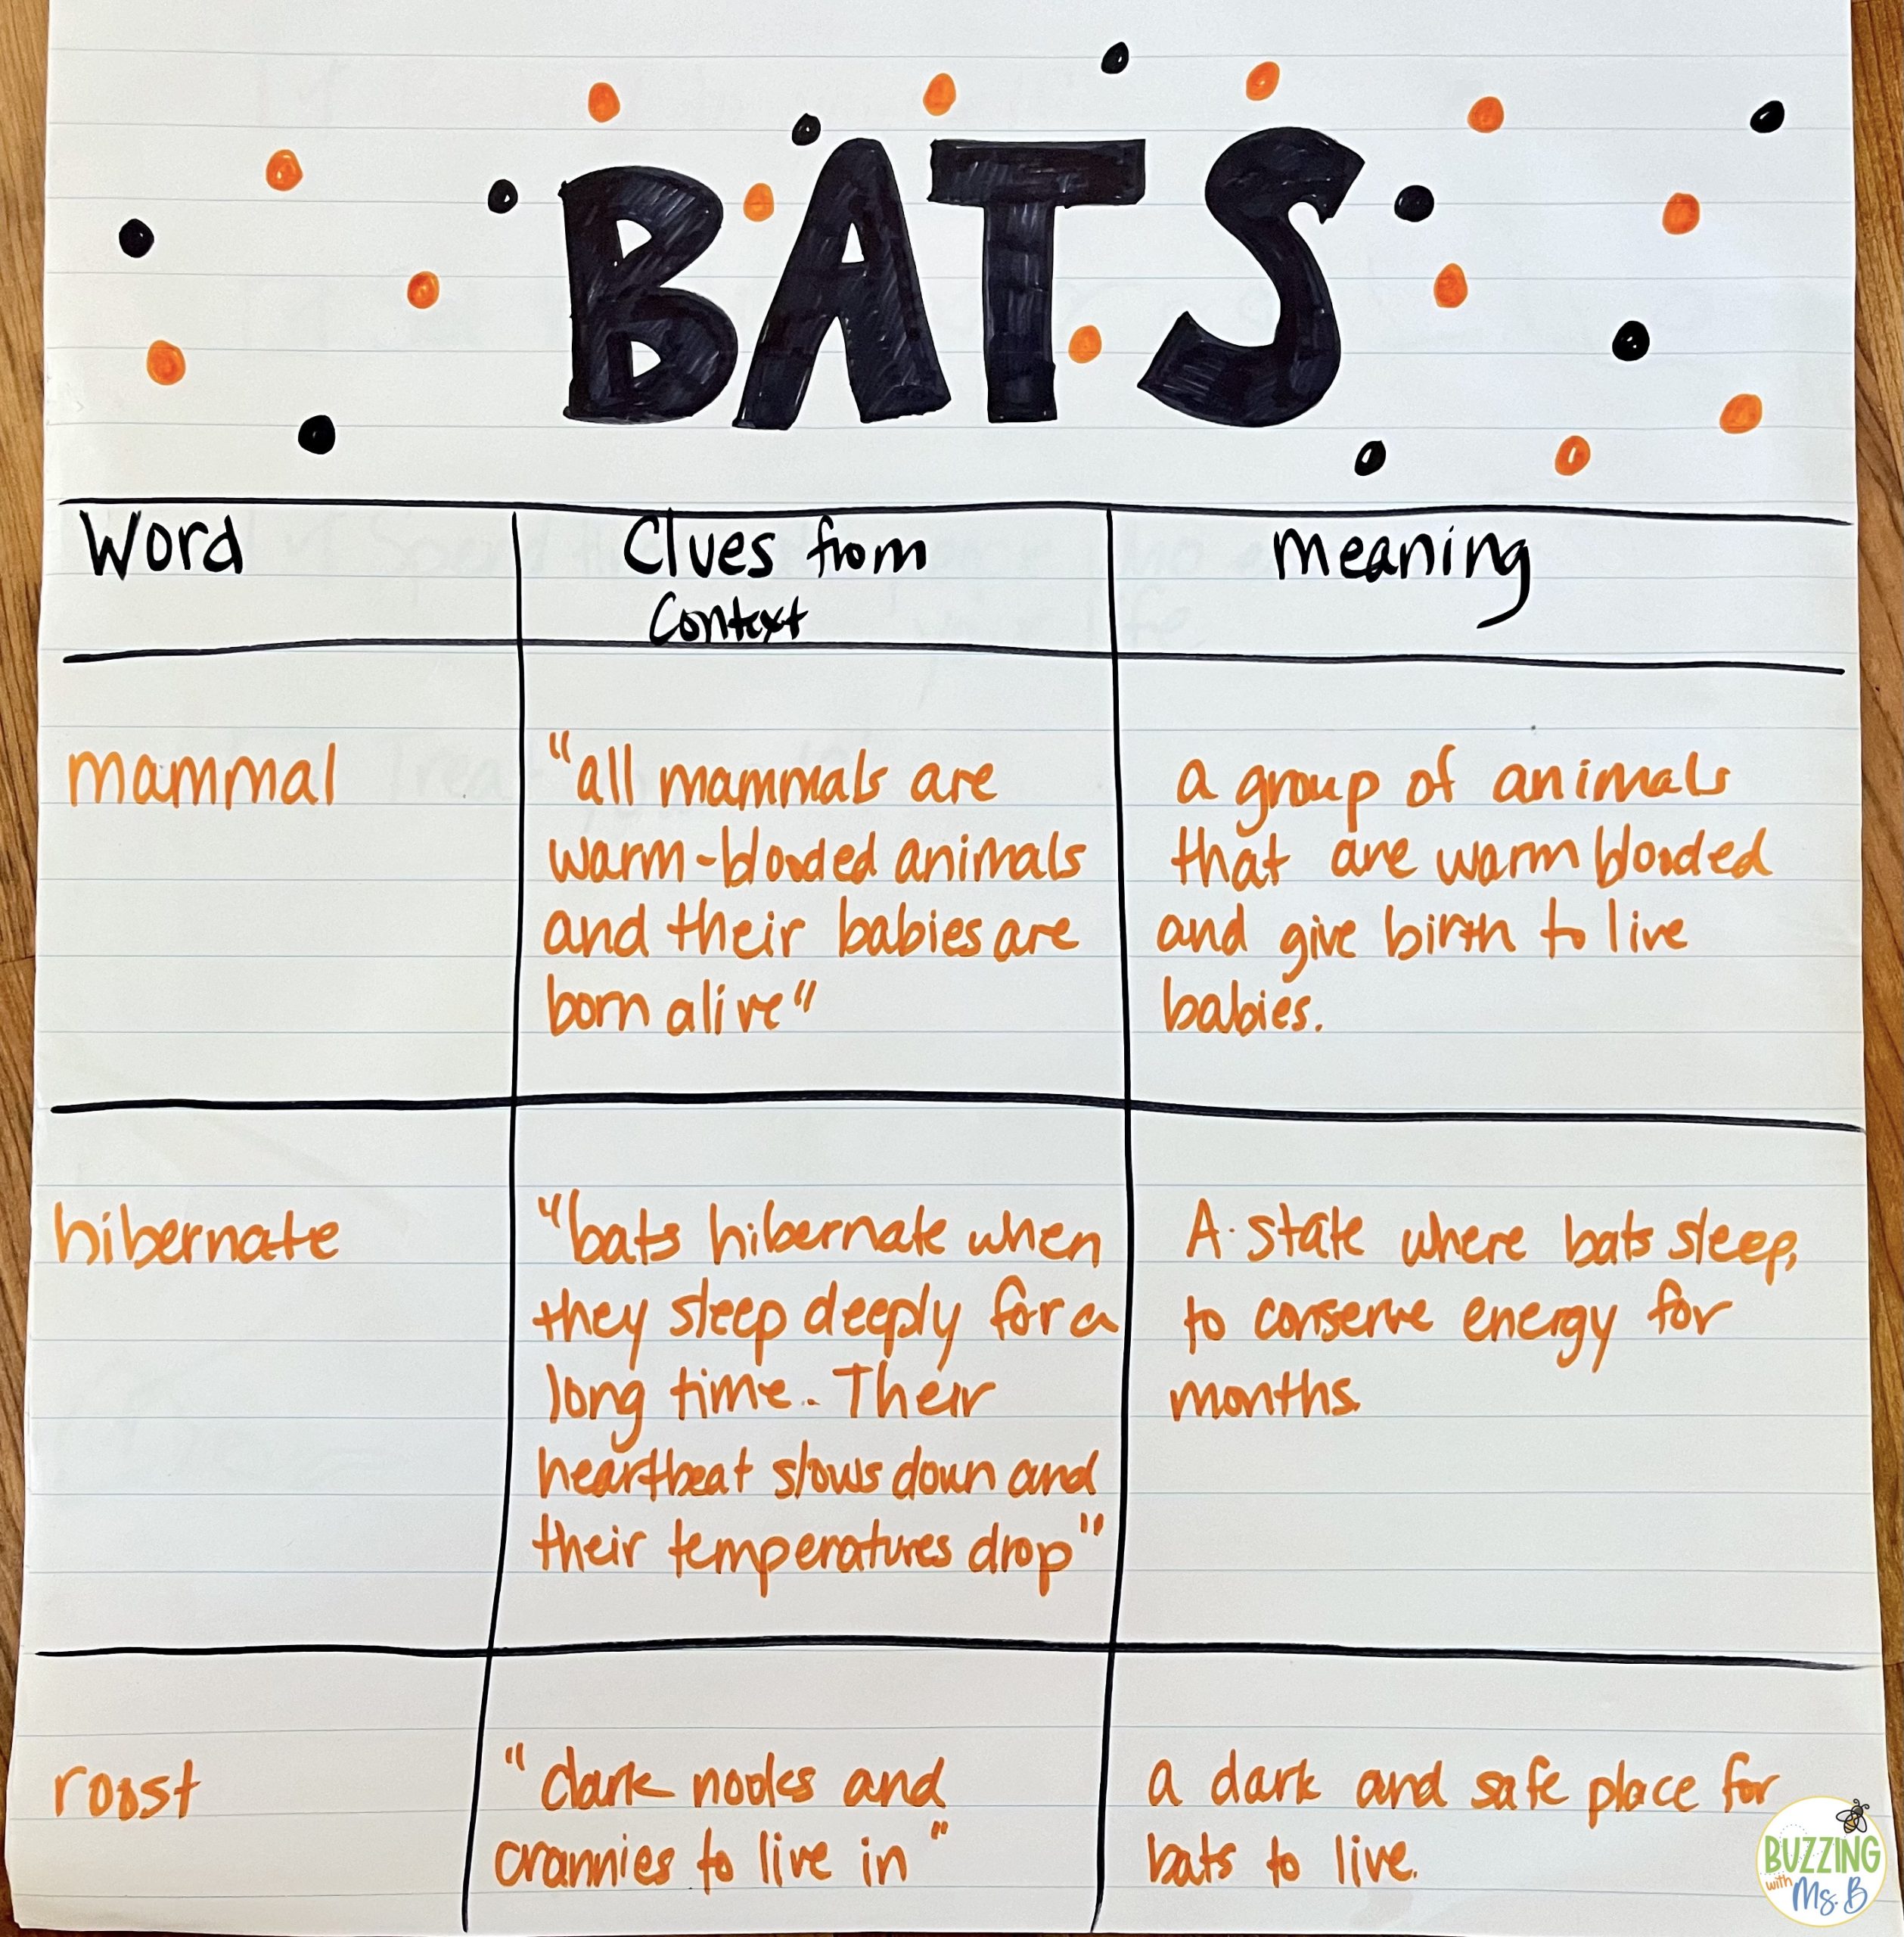 BATS
Word
Clues from
Context
meaning
mammal
"all mammals are
warm-blooded animals
and their babies are
born alive"
a group of animals
that are warm blooded
and give birth to live
babies.
hibernate
"bats hibernate when
they sleep deeply for a
long time. Their
heartbeat slows down and
their temperatures drop"
A state where bats sleep,
to conserve energy for
months.
roost
"dark nooks and
crannies to live in"
a dark and safe place for
bats to live.
BUZZING
with Ms. B